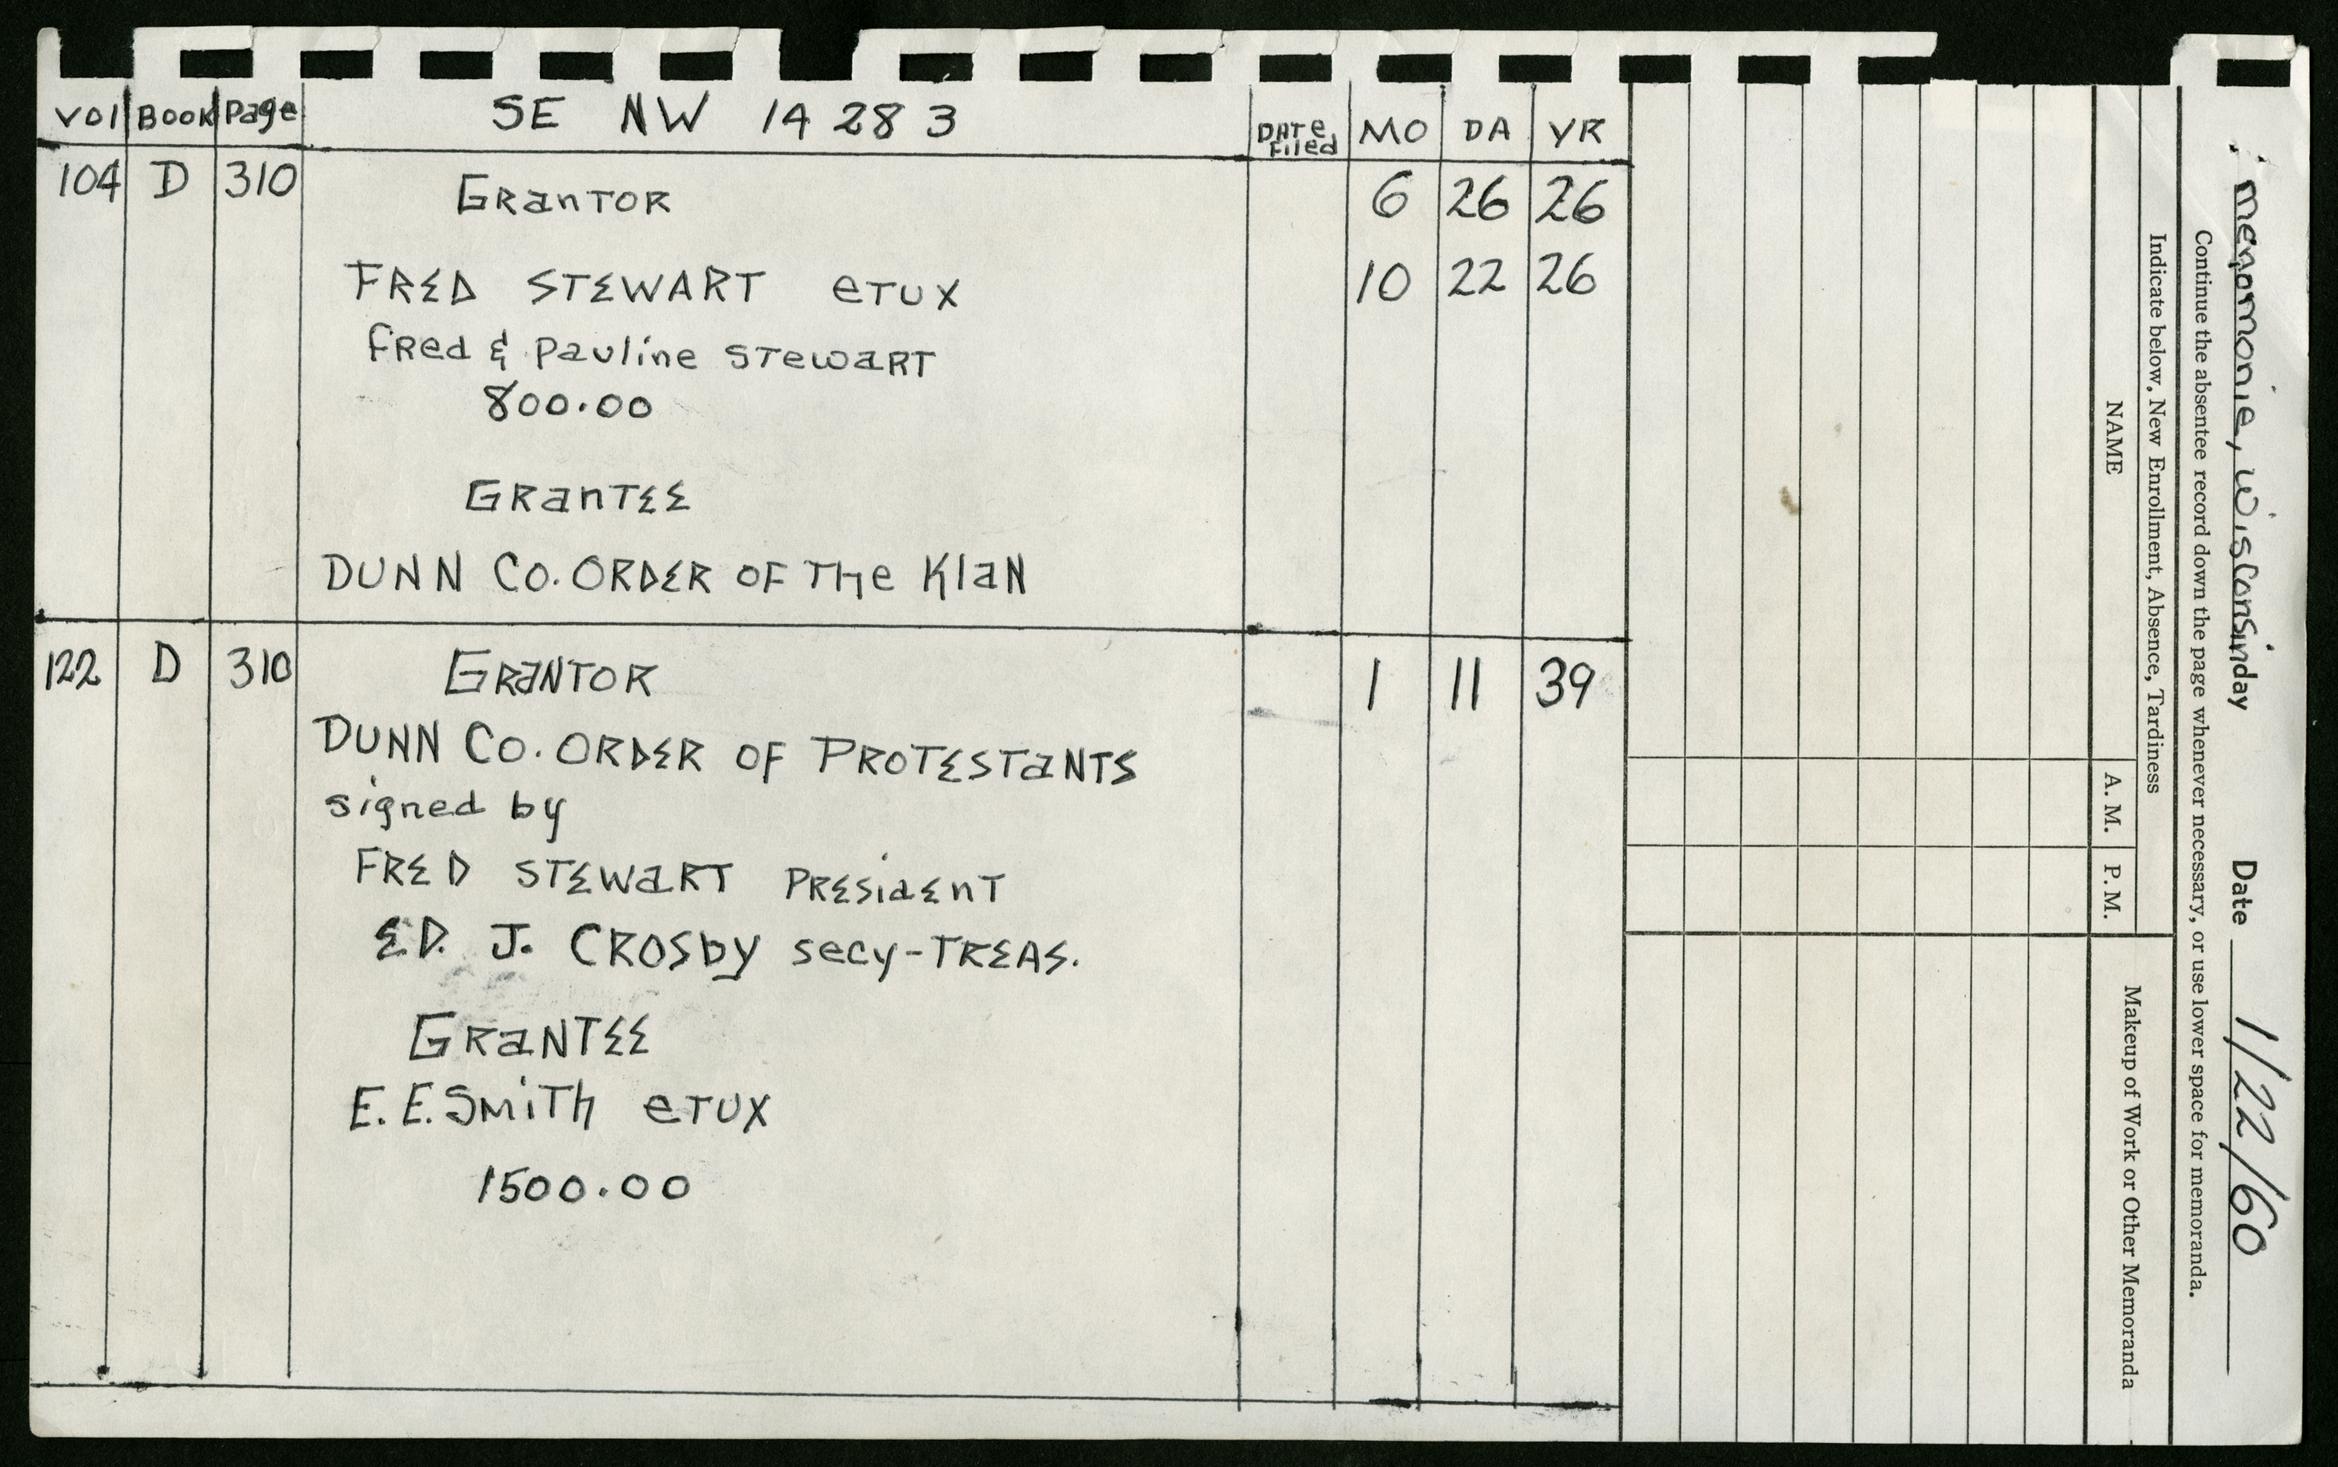 Vol Book Page SE NW 14 28 3 DATE Filed MO DA YR
104 D 310 GRanTOR 6 26 26
FRED STEWART eTUX 10 22 26
FRed & Pauline STewaRT
800.00
GRanTEE
DUNN CO. ORDER OF THe KlaN
122 D 310 GRaNTOR 1 11 39
DUNN CO. ORDER OF PROTESTaNTS
signed by
FRED STEWaRT PRESidEnT
ED. J. CROSby secy-TREAS.
GRaNTEE
E. E. SmiTh eTUX
1500.00
menomonie, wisconsin day Date 1/22/60
Continue the absentee record down the page whenever necessary, or use lower space for memoranda.
Indicate below, New Enrollment, Absence, Tardiness
NAME A. M. P. M. Makeup of Work or Other Memoranda